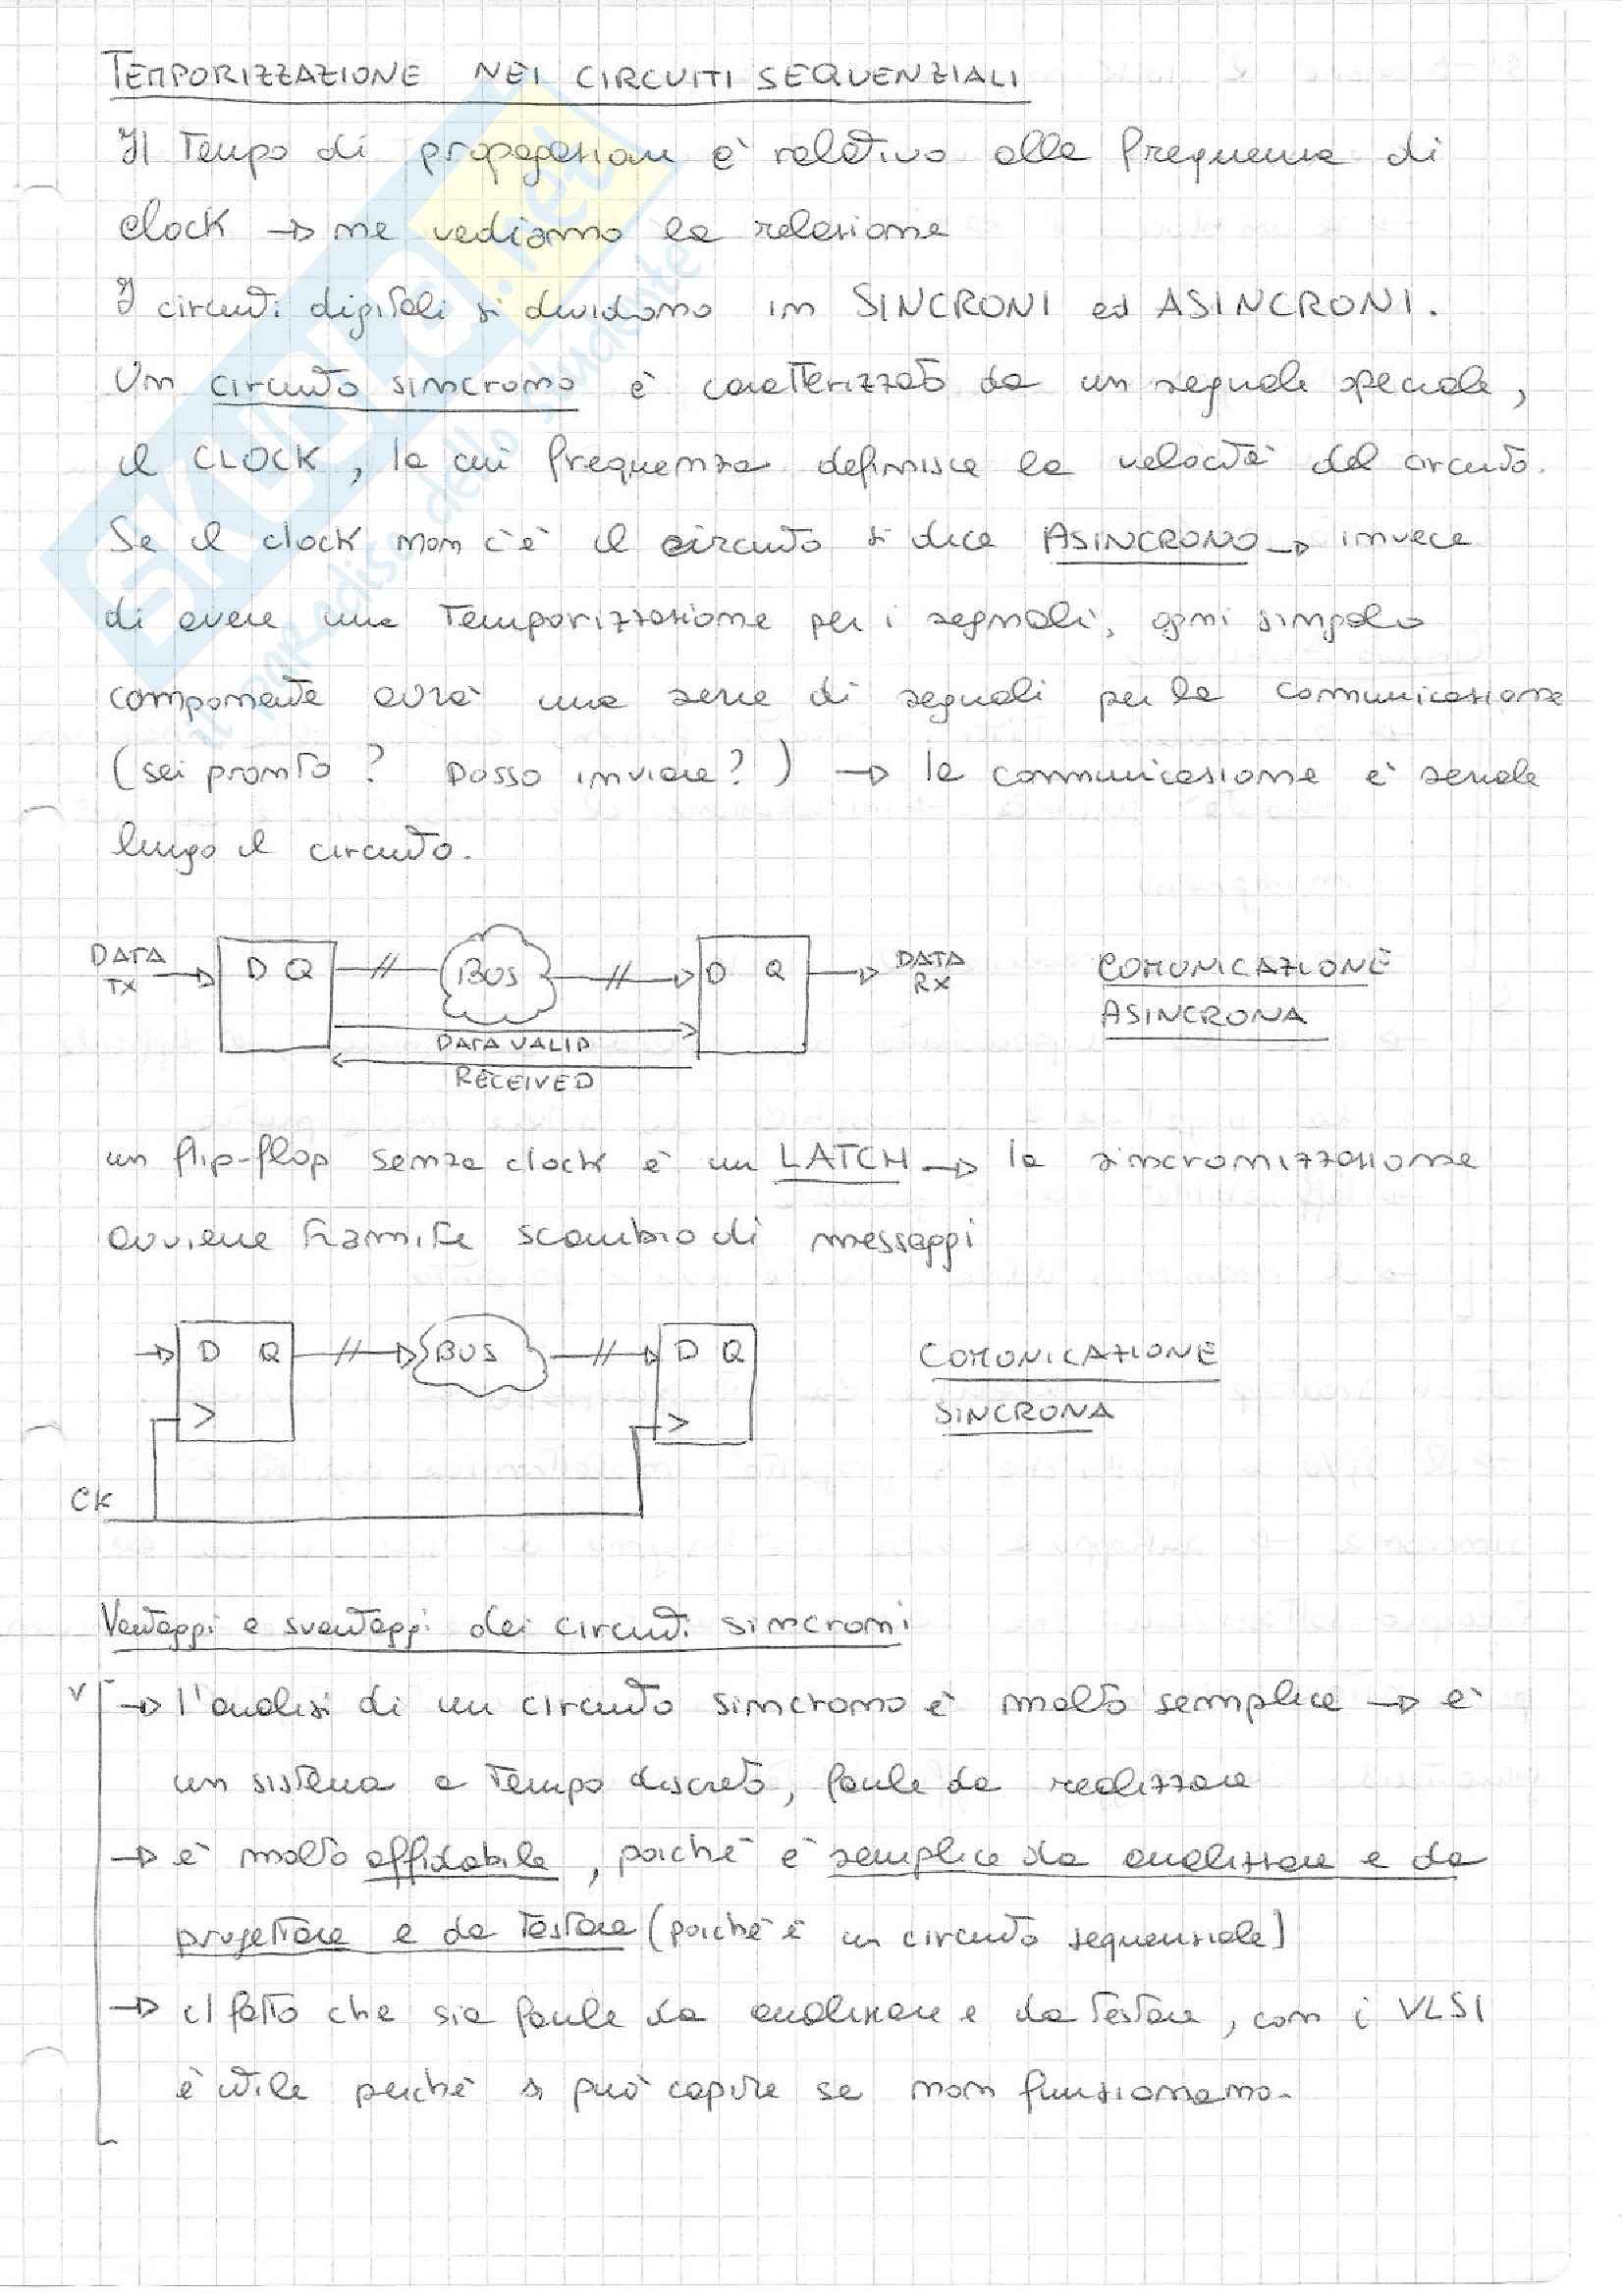 TEMPORIZZAZIONE NEI CIRCUITI SEQUENZIALI
Il tempo di propagazione è relativo alla frequenza di
clock → ne vediamo la relazione
I circuiti digitali si dividono in SINCRONI ed ASINCRONI.
Un circuito sincrono è caratterizzato da un segnale speciale,
il CLOCK, la cui frequenza definisce la velocità del circuito.
Se il clock non c'è il circuito si dice ASINCRONO → invece
di avere una temporizzazione per i segnali, ogni singolo
componente avrà una serie di segnali per la comunicazione
(sei pronto? Posso inviare?) → la comunicazione è seriale
lungo il circuito.
DATA TX D Q BUS D Q DATA RX
COMUNICAZIONE
ASINCRONA
DATA VALID
RECEIVED
un flip-flop senza clock è un LATCH → la sincronizzazione
avviene tramite scambio di messaggi
D Q BUS D Q
COMUNICAZIONE
SINCRONA
CK
Vantaggi e svantaggi dei circuiti sincroni
V → l'analisi di un circuito sincrono è molto semplice → è
un sistema a tempo discreto, facile da realizzare
→ è molto affidabile, poiché è semplice da analizzare e da
progettare e da testare (poiché è un circuito sequenziale)
→ il fatto che sia facile da analizzare e da testare, con i VLSI
è utile perché si può capire se non funzionano.
SKUOLA.net
il paradiso dello studente